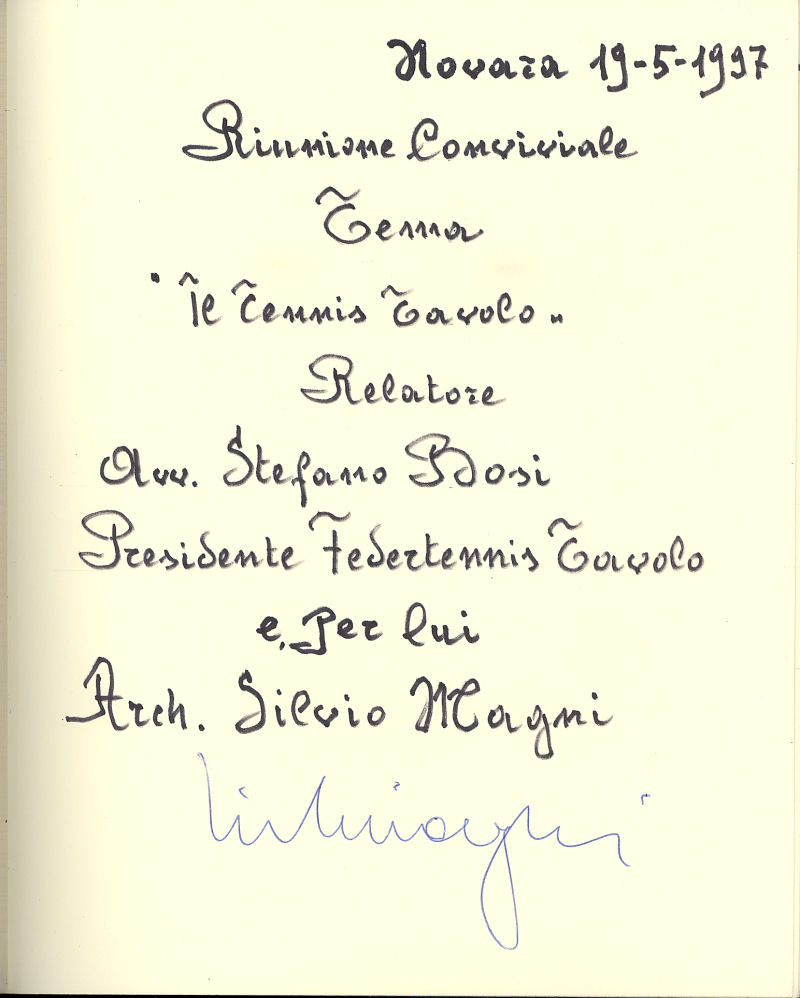 Novara 19-5-1997
Riunione Conviviale
Tema
"Il Tennis Tavolo"
Relatore
Avv. Stefano Bosi
Presidente Federtennis Tavolo
e, Per lui
Arch. Silvio Magni